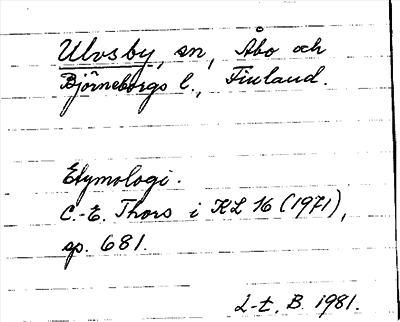 Ulvsby, sn, Åbo och
Björneborgs l., Finland.
Etymologi.
C.-E. Thors i KL 16 (1971),
sp. 681.
L-t. B. 1981.